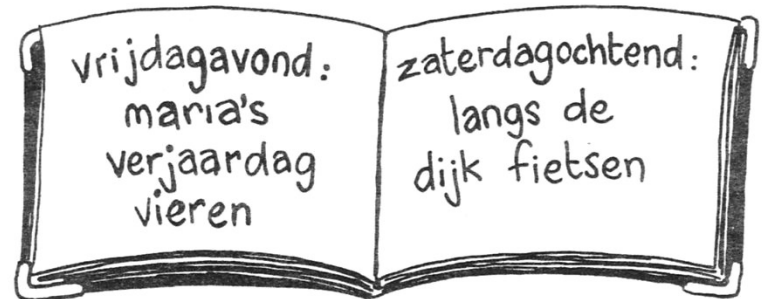 vrijdagavond:
maria's
verjaardag
vieren
zaterdagochtend:
langs de
dijk fietsen